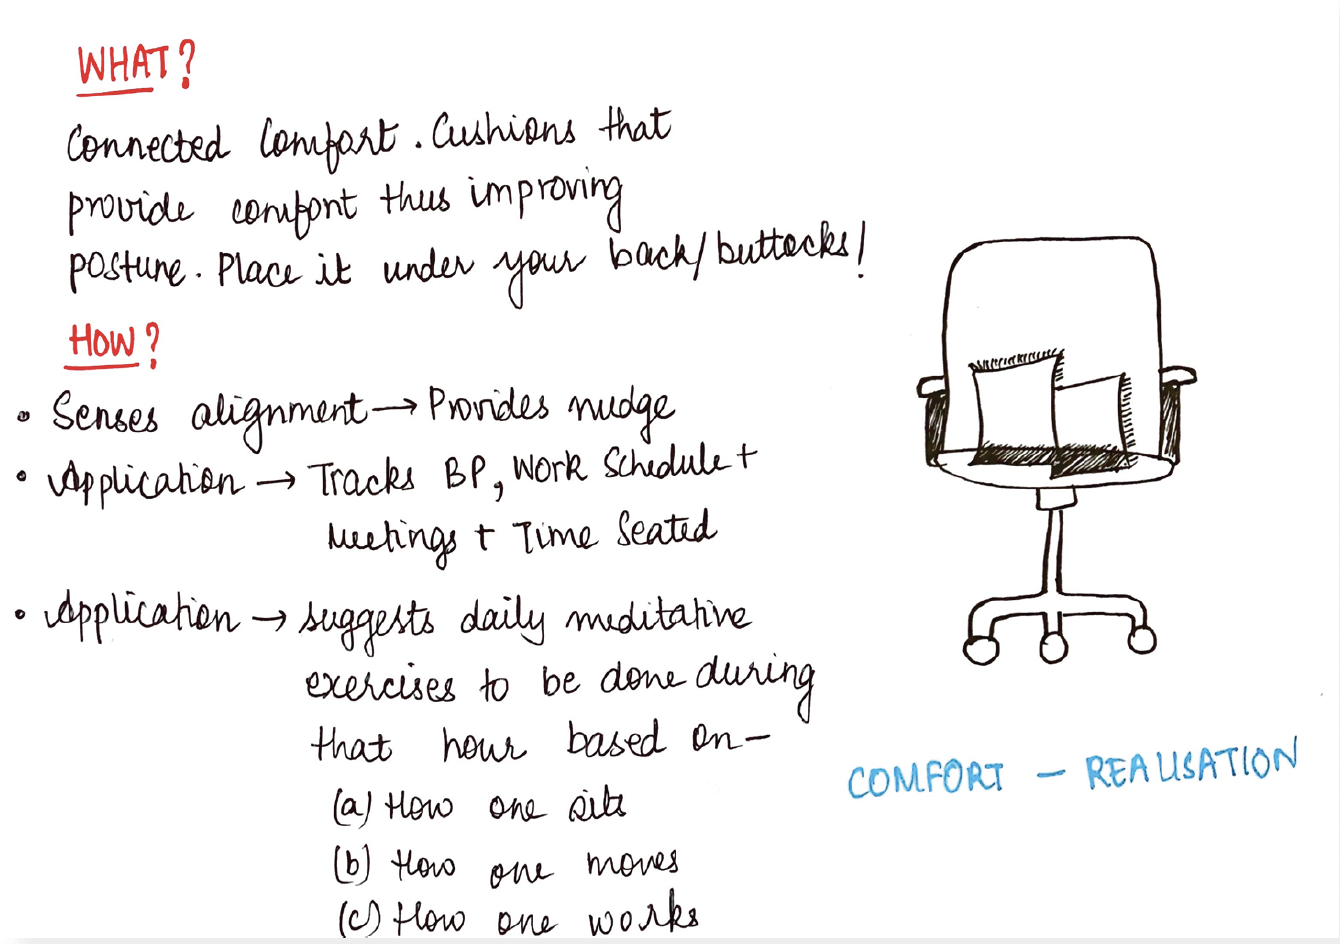 WHAT?
Connected Comfort. Cushions that
provide comfort thus improving
posture. Place it under your back/buttocks!
HOW?
• Senses alignment → Provides nudge
• Application → Tracks BP, Work Schedule +
Meetings + Time Seated
• Application → suggests daily meditative
exercises to be done during
that hour based on -
(a) How one sits
(b) How one moves
(c) How one works
COMFORT - REALISATION